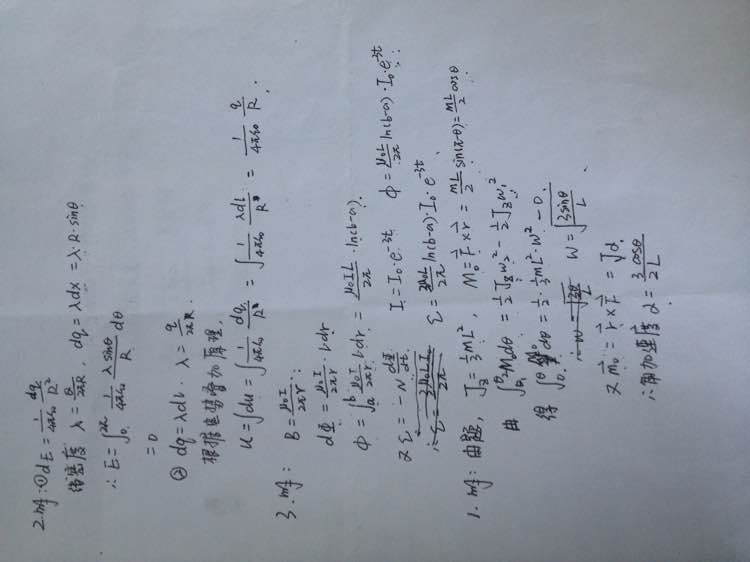 2.解:①dE = 1/4πε₀ dq/R²
线密度 λ = Q/2πR. dq = λdx = λ·R·sinθ
∴ E = ∫₀^2π 1/4πε₀ λsinθ/R dθ
= 0
② dq = λdl . λ = q/2πR.
根据电势叠加原理,
u = ∫du = ∫ 1/4πε₀ dq/R = ∫ 1/4πε₀ λdl/R = 1/4πε₀ q/R .
3.解: B = μ₀I/2πr .
dΦ = μ₀I/2πr · Ldr
Φ = ∫ₐᵇ μ₀I/2πr Ldr = μ₀IL/2π · ln(b-a).
又 ε = -N dΦ/dt. I = I₀·e^-3t. Φ = μ₀L/2π ln(b-a)·I₀·e^-3t.
ε = 3μ₀L/2π ln(b-a)·I₀·e^-3t.
1.解: 由题, J_z = 1/3 mL², M₀ = r × F = mL/2 sin(π-θ) = mL/2 cosθ
由 ∫ M₀dθ = 1/2 J_z ω₂² - 1/2 J_z ω₁²
得 ∫₀^θ M₀ dθ = 1/2 · 1/3 mL² · ω² - 0.
ω = √3sinθ/L
又 M₀ = r × F = Jα.
∴角加速度 α = 3cosθ/2L